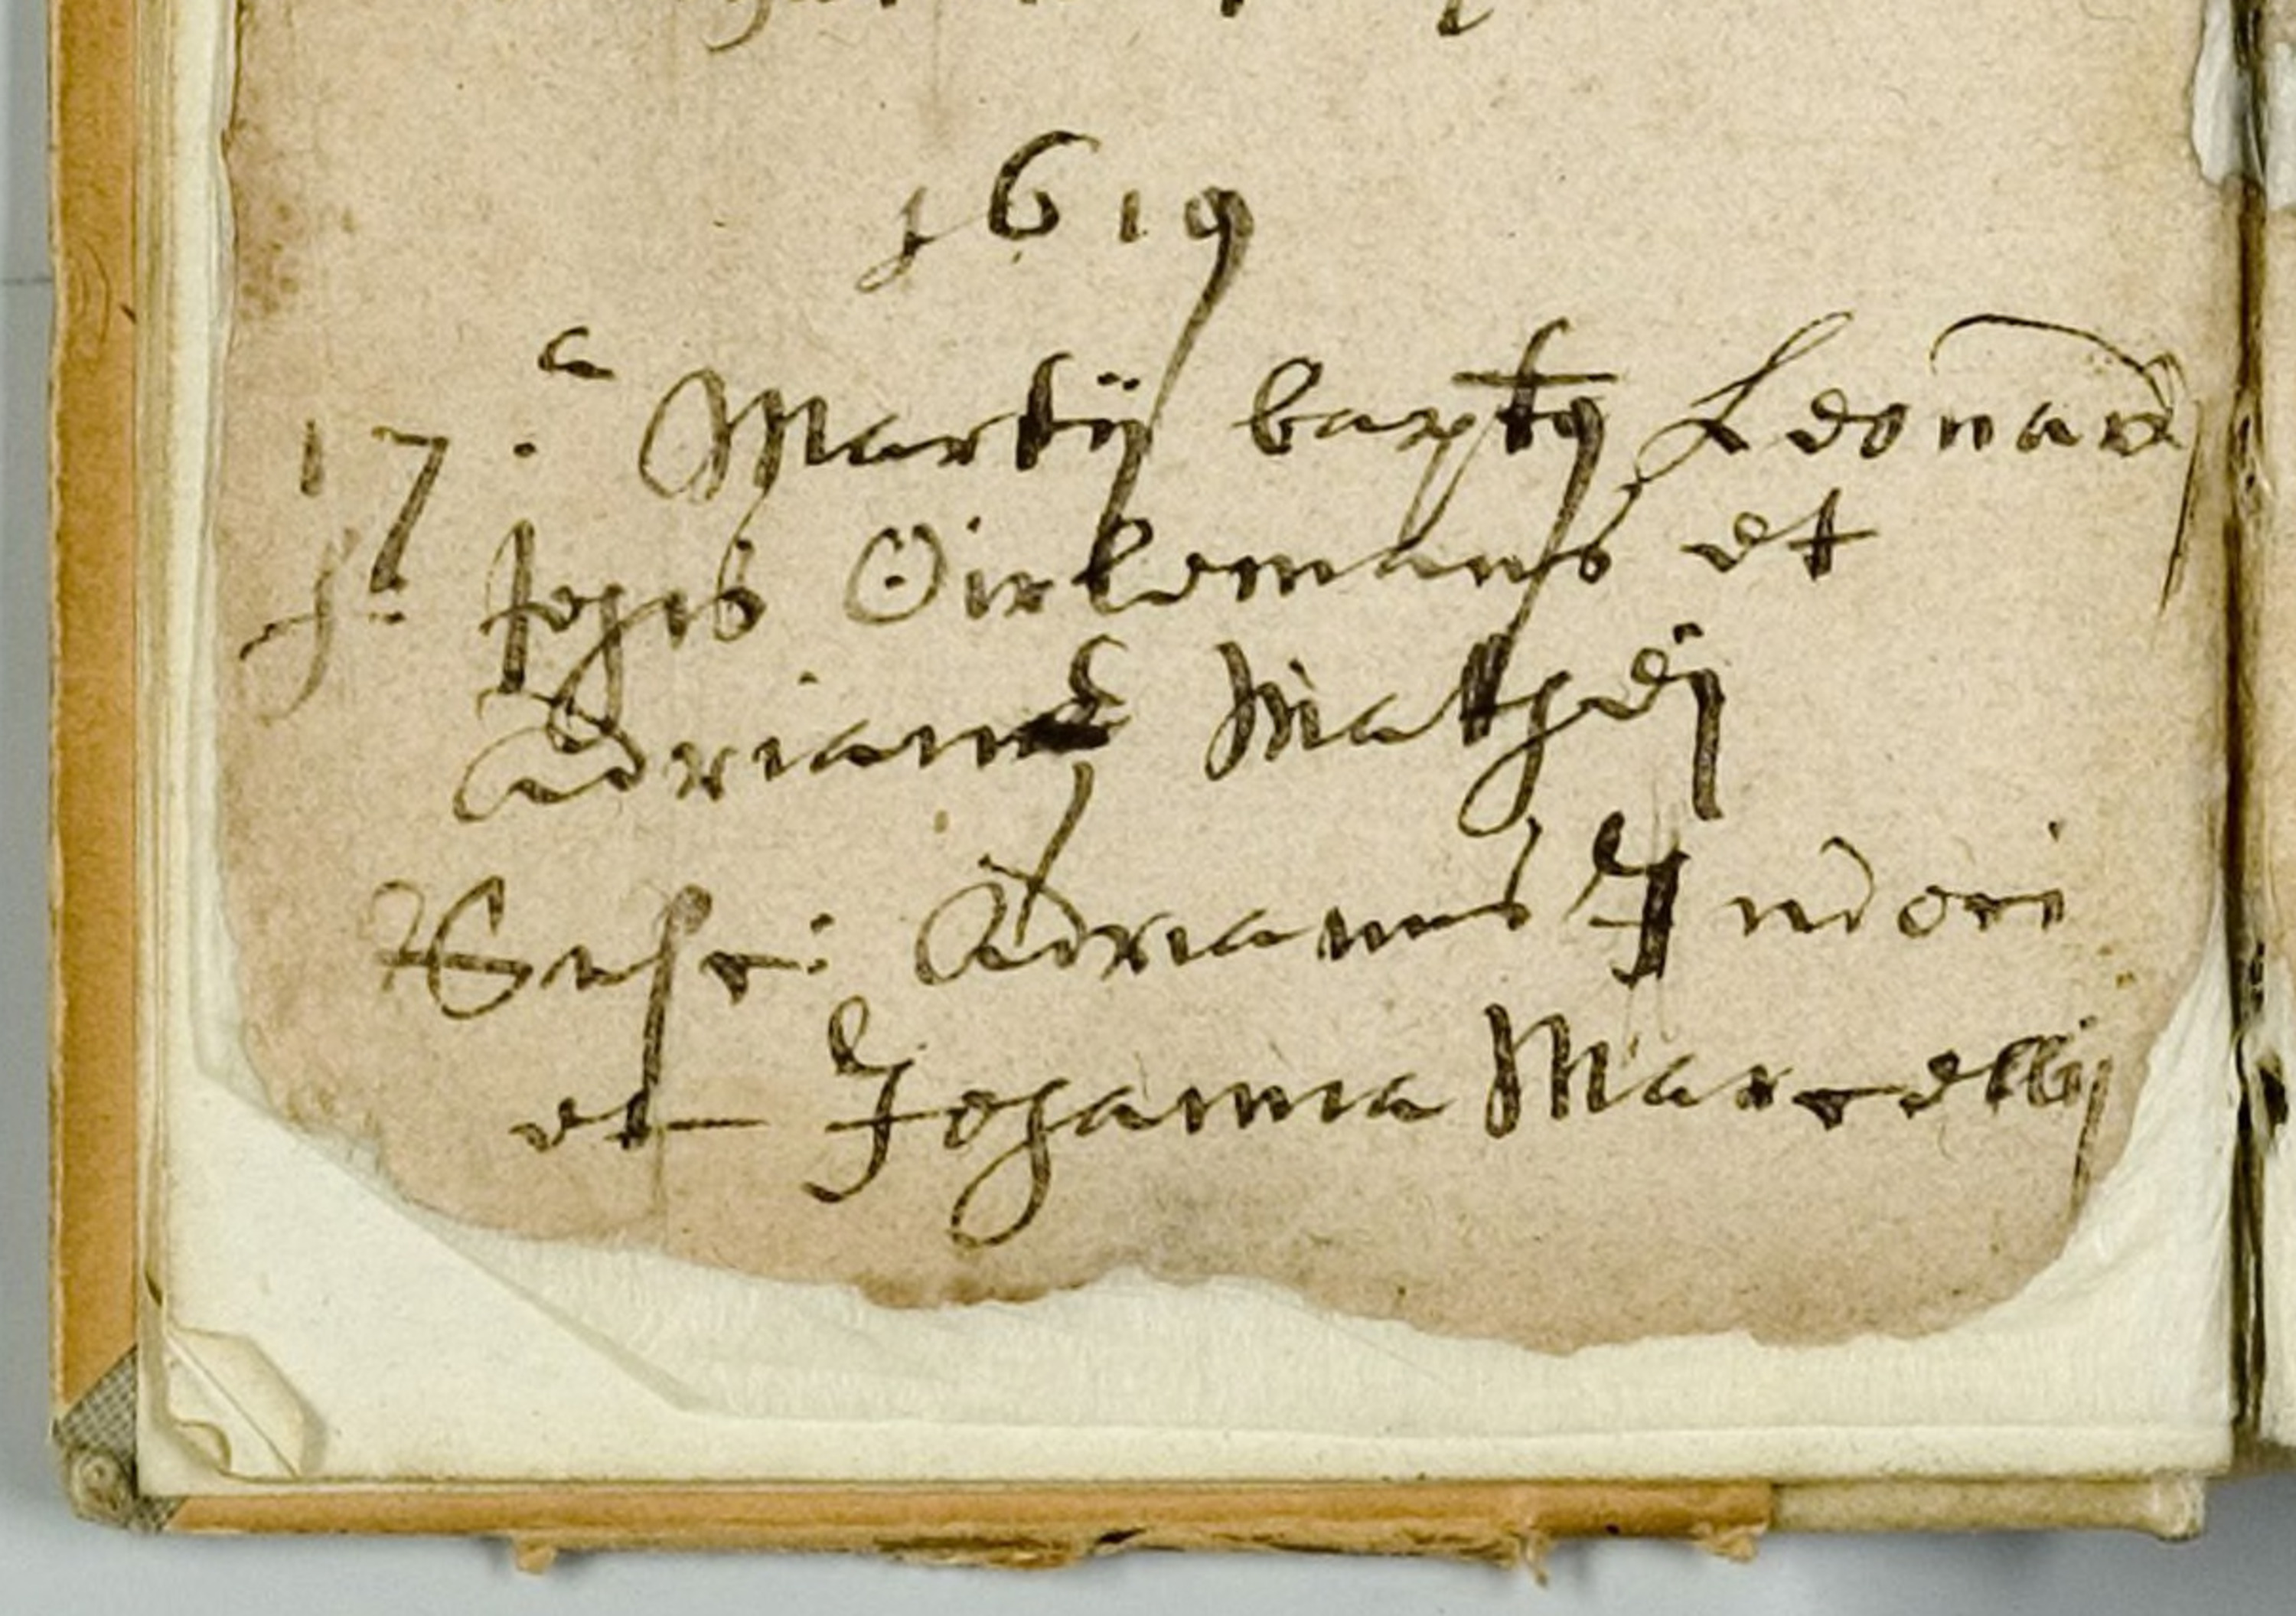 1619
17.a Martij baptus Leonard
fs Johis Oirlemans et
Adriana Mathei
Susc: Adrianus Judoci
et Johanna Marcellij